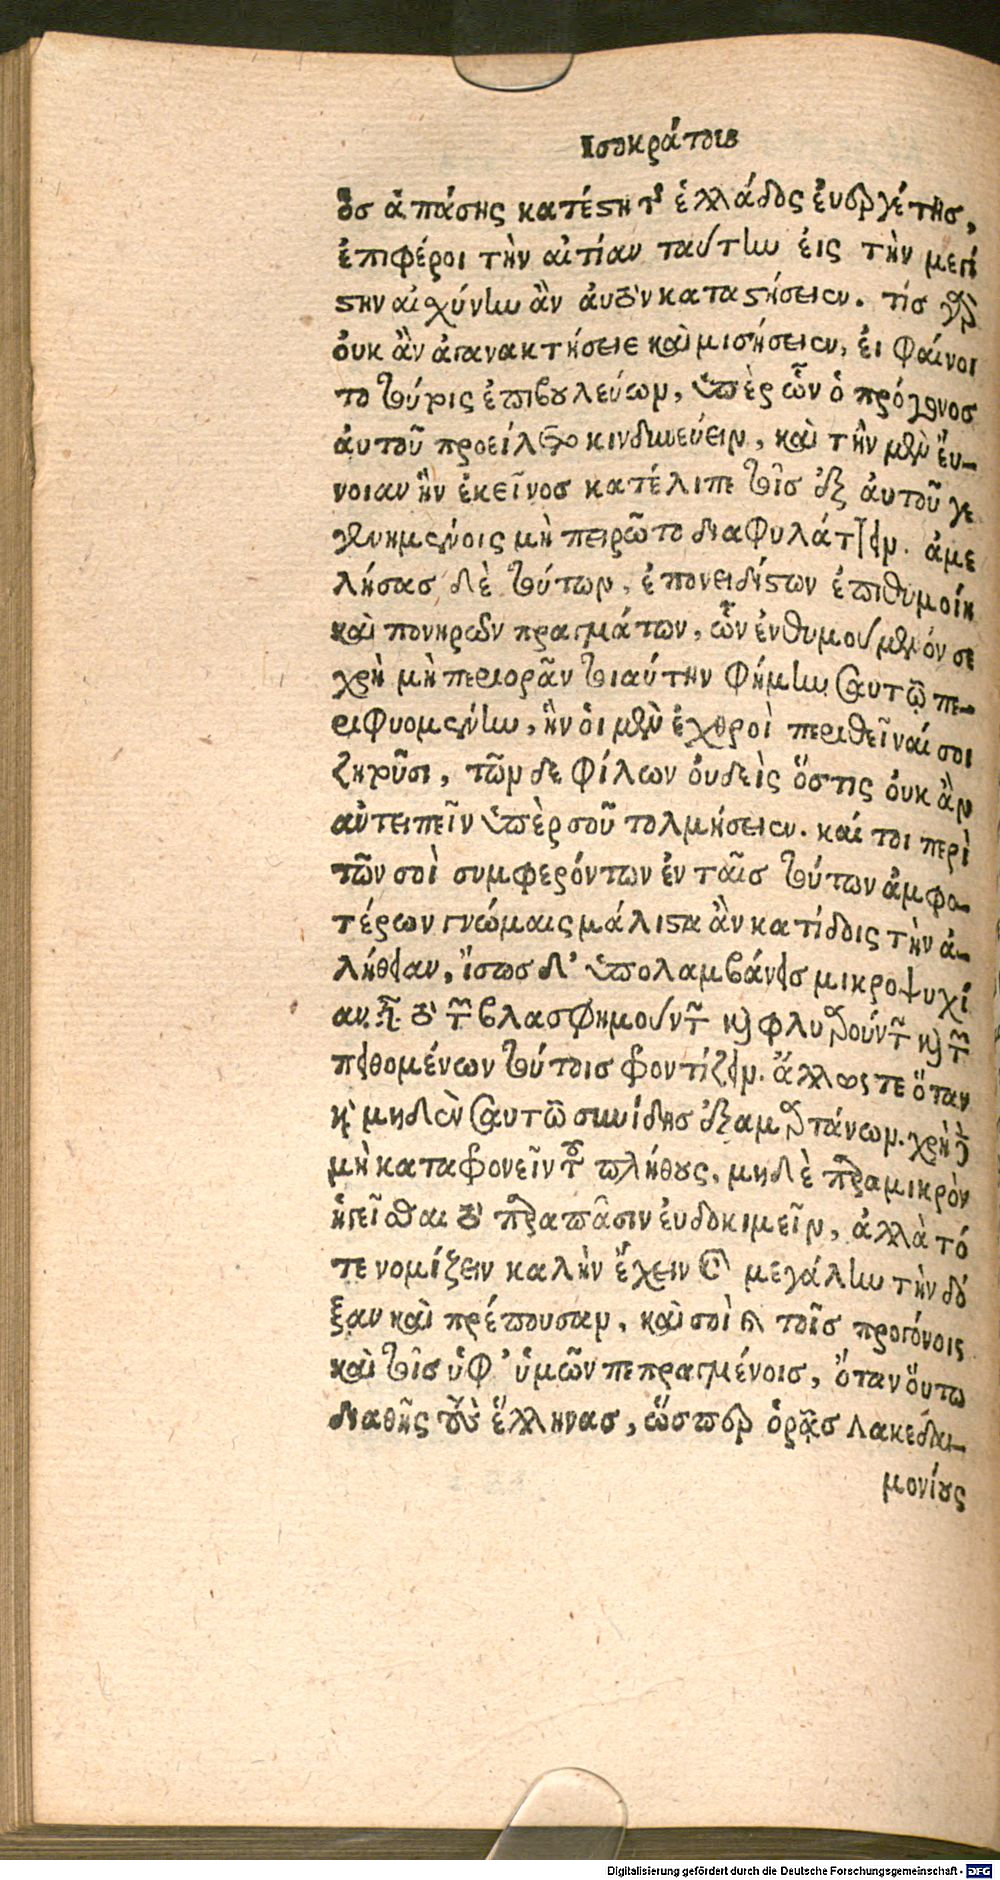 Ισοκράτους
ὃσ ἁπάσης κατέστη τῆς ἑλλάδος ἐυεργέτησ,
ἐπιφέροι τὴν αἰτίαν ταύτην ἐις τὴν μεγί
στην αἰσχύνην ἂν ἀυτὸν καταστήσειεν. τίσ γὰρ
ὀυκ ἂν ἀγανακτήσειε καὶ μισήσειεν, ἐι φαίνοι
το τούτοις ἐπιβουλεύων, ὑπὲρ ὧν ὁ πρόγονοσ
ἀυτοῦ προείλετο κινδυνεύειν, καὶ τὴν μὲν ἔυ-
νοιαν ἣν ἐκεῖνοσ κατέλιπε τοῖσ ἐξ ἀυτοῦ γε
γενημένοις μὴ πειρῶτο διαφυλάττειν. ἀμε
λήσασ δὲ τούτων, ἐπονειδίστων ἐπιθυμοίη
καὶ πονηρῶν πραγμάτων, ὧν ἐνθυμούμενόν σε
χρὴ μὴ περιορᾶν τοιαύτην φήμην σαυτῷ πε-
ριφυομένην, ἣν ὁι μὲν ἐχθροὶ περιθεῖναί σοι
ζητοῦσι, τῶν δε φίλων ὀυδεὶς ὅστις ὀυκ ἂν
ἀντειπεῖν ὑπὲρ σοῦ τολμήσειεν. καί τοι περὶ
τῶν σοὶ συμφερόντων ἐν ταῖσ τούτων ἀμφο-
τέρων γνώμαις μάλιστα ἂν κατίδοις τὴν ἀ-
λήθειαν, ἴσωσ δ' ὑπολαμβάνεισ μικροψυχί
αν εἶναι τὸ τῶν βλασφημούντων καὶ φλυαρούντων καὶ τῶν
πειθομένων τούτοισ φροντίζειν. ἄλλως τε ὅταν
καὶ μηδὲν σαυτῶ συνίδησ ἐξαμαρτάνων. χρὴ δὲ
μὴ καταφρονεῖν τοῦ πλήθους, μηδὲ παρὰ μικρὸν
ἡγεῖσθαι τὸ παρὰ πᾶσιν ἐυδοκιμεῖν, ἀλλὰ τό
τε νομίζειν καλὴν ἔχειν καὶ μεγάλην τὴν δό
ξαν καὶ πρέπουσαν, καὶ σοὶ καὶ τοῖσ προγόνοις
καὶ τοῖσ ὑφ' ὑμῶν πεπραγμένοισ, ὅταν ὅυτω
διαθῇς τοὺς ἕλληνασ, ὥσπερ ὁρᾷσ λακεδαι-
μονίους
Digitalisierung gefördert durch die Deutsche Forschungsgemeinschaft - DFG